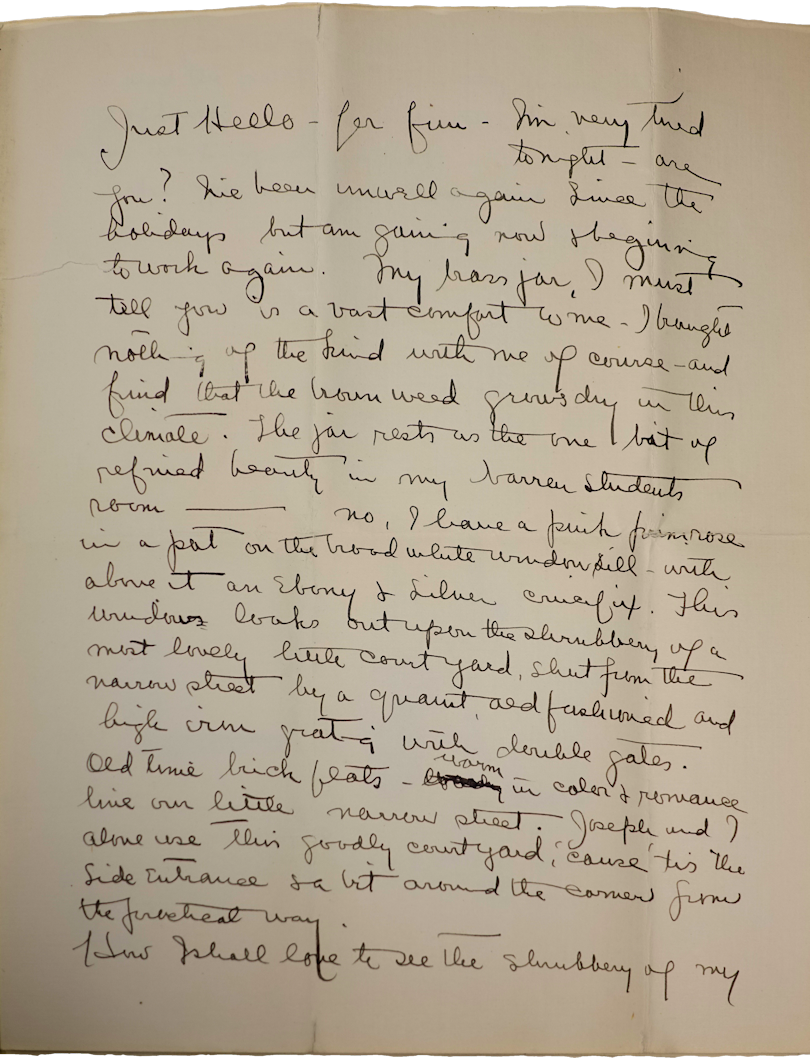 Just Hello - for fun - I'm very tired
tonight - are
you? I've been unwell again since the
holidays but am gaining now & beginning
to work again. My brass jar, I must
tell you is a vast comfort to me - I bought
nothing of the kind with me of course - and
find that the brown weed grows dry in this
climate. The jar rests as the one bit of
refined beauty in my barren students
room ——— no, I have a pink primrose
in a pot on the broad white window sill - with
above it an Ebony & Silver crucifix. This
window looks out upon the shrubbery of a
most lovely little court yard, shut from the
narrow street by a quaint, old fashioned and
high iron grating with double gates.
Old time brick flats - warm in color & romance
line our little narrow street. Joseph and I
alone use this goodly court yard, 'cause 'tis the
Side Entrance & a bit around the corner from
the practical way.
How I shall love to see the shrubbery of my